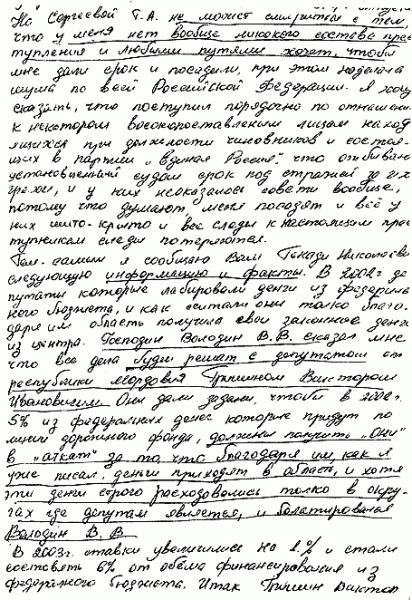 На Сергеевой Т.А. не может смирится с тем,
что у меня нет вообще никакого состава прес
тупления и любыми путями хочет, чтобы
мне дали срок и посадили, при этом наделала
шума по всей Российской Федерации. Я хочу
сказать, что поступил порядочно по отношению
к некоторым высокопоставленым лицам наход
ящихся при должности чиновников и состоя-
щих в партии "Единая Россия" что отбываю
установленный судом срок под стражей за их
грехи, и у них неоказалось совести вообще,
потому что думают меня посадят и всё у
них шито-крыто и все следы к настоящим прес
тупникам следы потеряются.
Тем самым я сообщаю Вам Николаевич
следующую информацию и факты. В 2002г де
путаты которые лабировали денги из федераль
ного бюджета, и как считали они только благо-
даря им область получила свои законные денги
из центра. Господин Володин В.В. сказал мне
что все дела буду решать с депутатом от
республики Мордовия Гришиным Виктором
Ивановичем Они дали задание, чтобы в 2002г.
5% из федеральных денег которые придут по
линии дорожного фонда, должны получить "Они"
в "аткат" за то, что благодаря им, как я
уже писал, деньги приходят в область, и хотя
эти денги строго расходовались только в окру-
гах где депутатам является, и балатировался
Володин В.В.
В 2003г. ставки увеличились на 1% и стали
составлять 6% от объема финансирования из
федерального бюджета. Итак Гришин Виктор